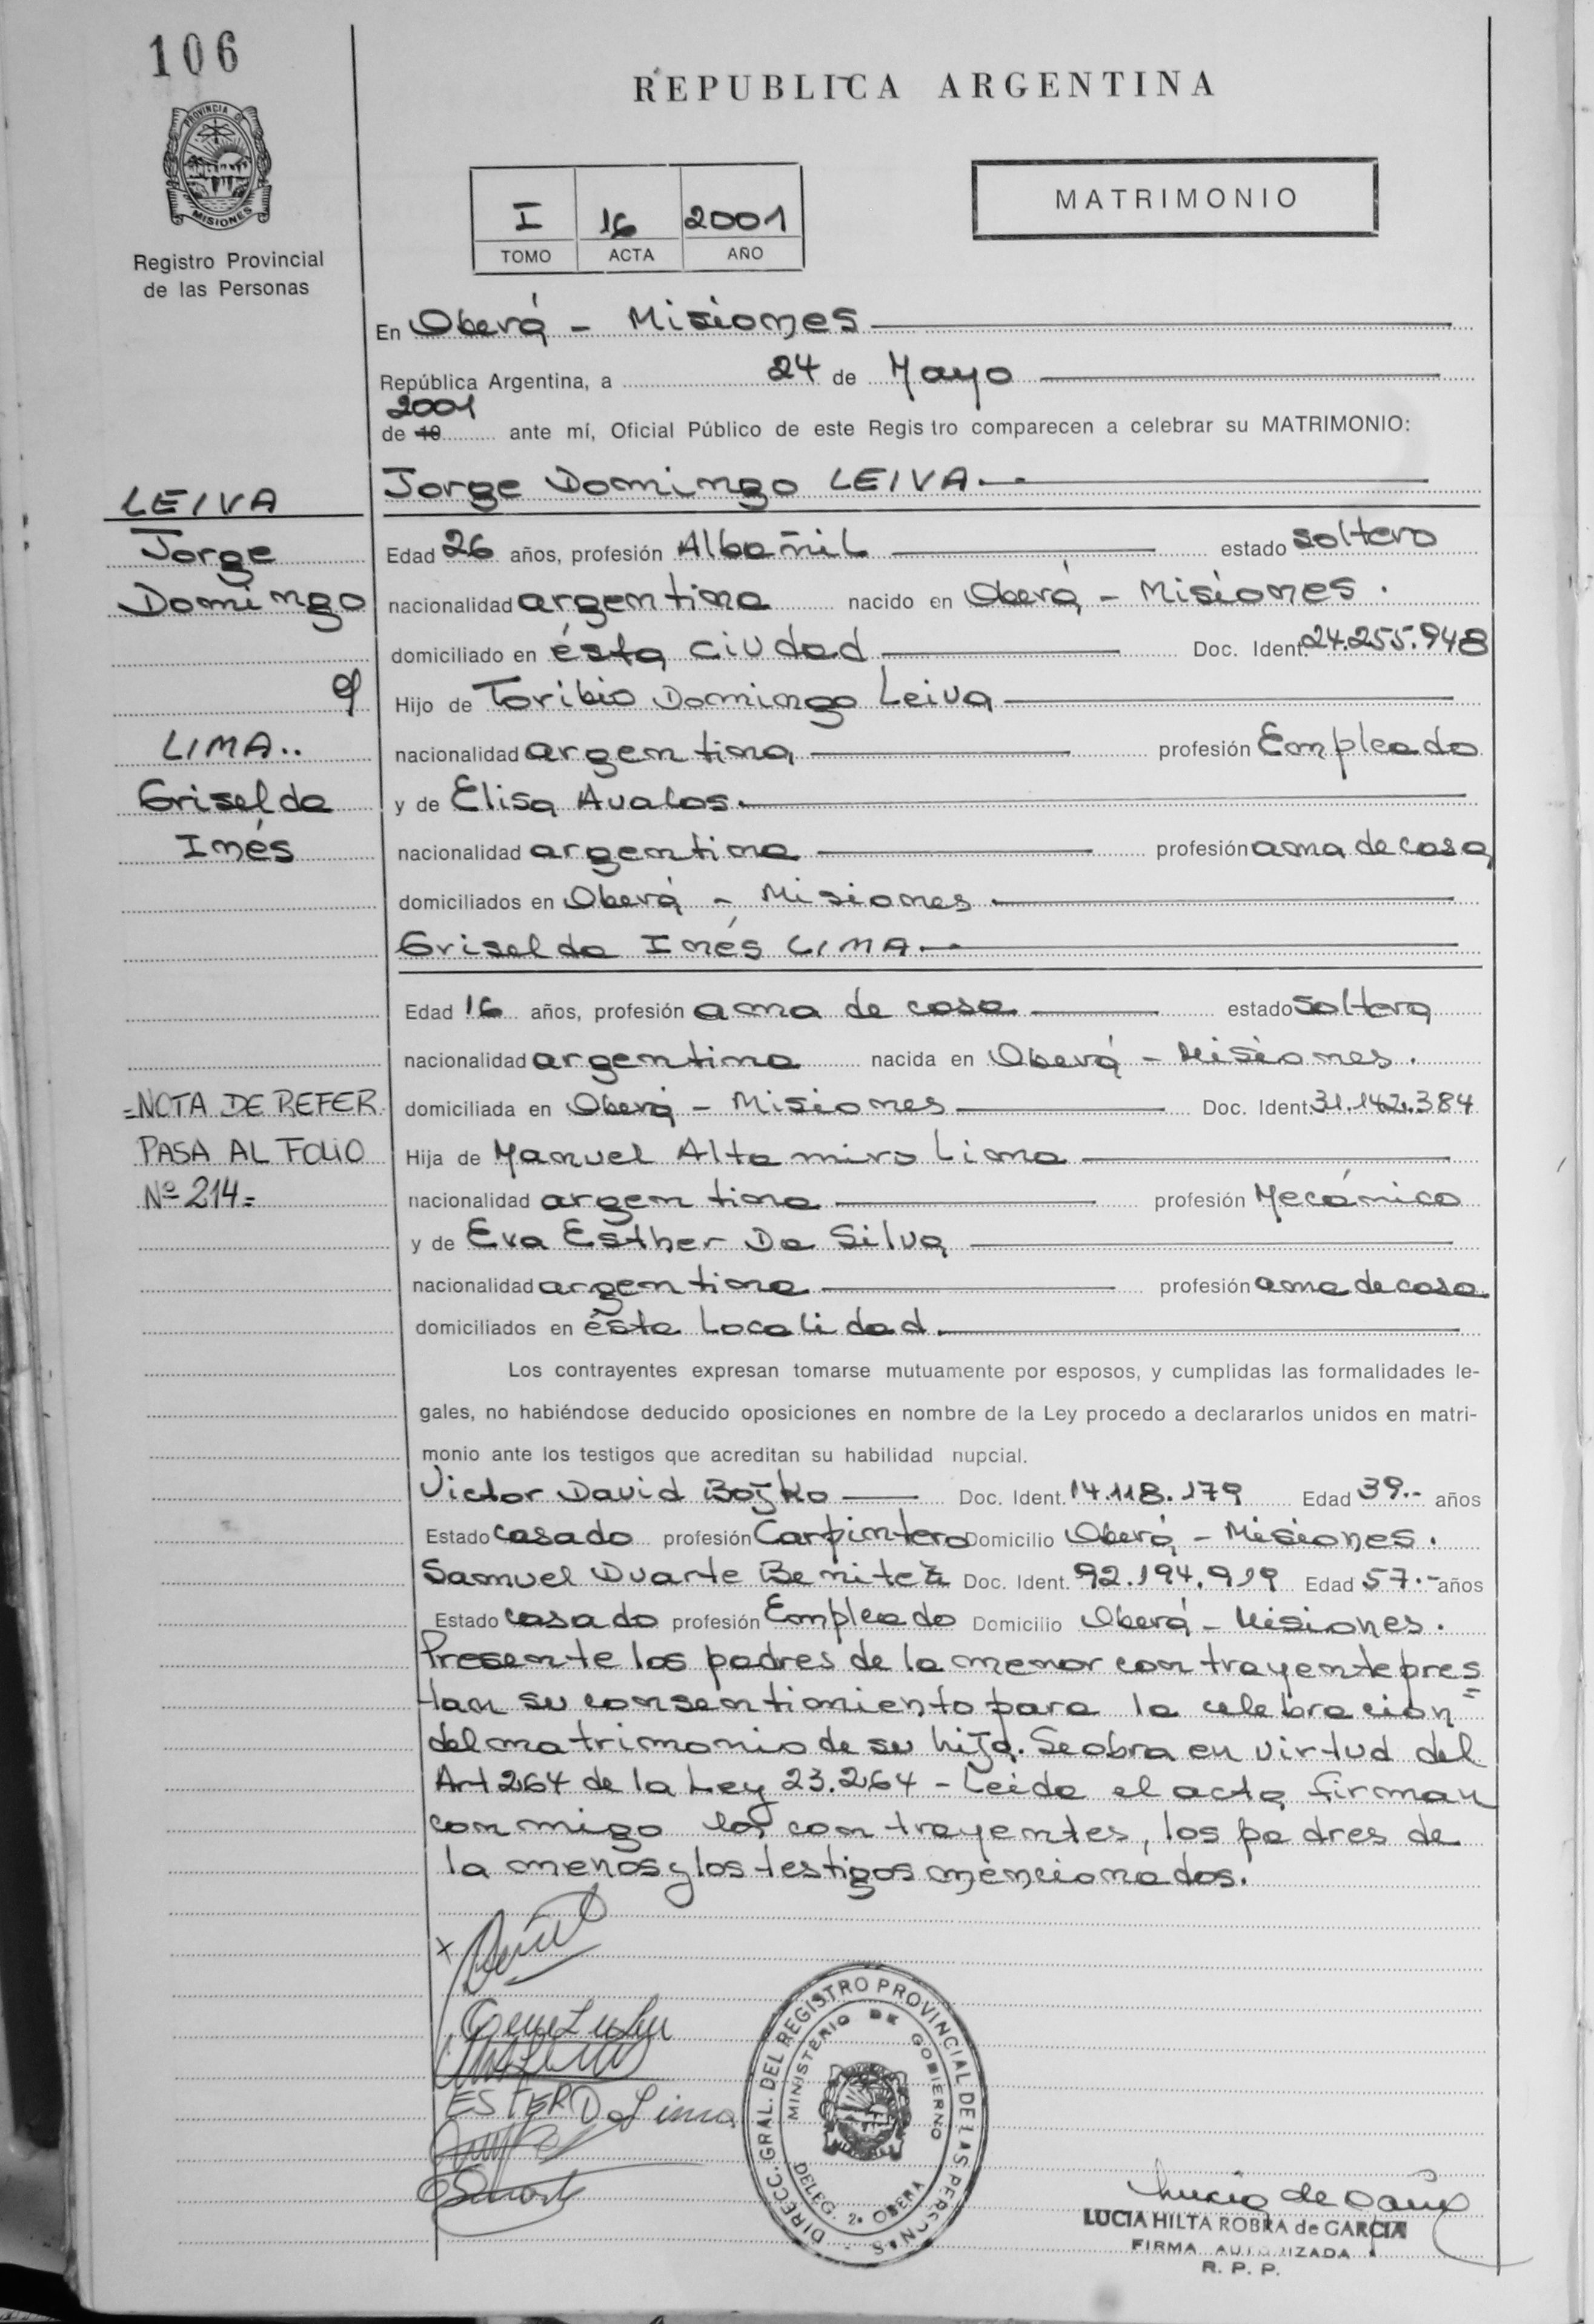 106
REPUBLICA ARGENTINA
PROVINCIA DE
MISIONES
Registro Provincial
de las Personas
I 16 2001
TOMO ACTA AÑO
MATRIMONIO
En Oberá - Misiones
República Argentina, a 24 de Mayo
2001
de 19 ante mí, Oficial Público de este Regis tro comparecen a celebrar su MATRIMONIO:
Jorge Domingo LEIVA.-
LEIVA
Jorge
Domingo
LIMA..
Griselda
Inés
Edad 26 años, profesión Albañil estado soltero
nacionalidad argentina nacido en Oberá - Misiones.
domiciliado en ésta ciudad Doc. Ident. 24.255.948
Hijo de Toribio Domingo Leiva
nacionalidad argentina profesión Empleado
y de Elisa Avalos.
nacionalidad argentina profesión ama de casa
domiciliados en Oberá - Misiones.
Griselda Inés LIMA.-
Edad 16 años, profesión ama de casa estado soltera
nacionalidad argentina nacida en Oberá - Misiones.
=NOTA DE REFER.
PASA AL FOLIO
Nº 214=
domiciliada en Oberá - Misiones Doc. Ident. 31.142.384
Hija de Manuel Altamiro Lima
nacionalidad argentina profesión Mecánico
y de Eva Esther Da Silva
nacionalidad argentina profesión ama de casa
domiciliados en ésta localidad.
Los contrayentes expresan tomarse mutuamente por esposos, y cumplidas las formalidades le-
gales, no habiéndose deducido oposiciones en nombre de la Ley procedo a declararlos unidos en matri-
monio ante los testigos que acreditan su habilidad nupcial.
Victor David Bojko Doc. Ident. 14.118.179 Edad 39.- años
Estado casado profesión Carpintero Domicilio Oberá - Misiones.
Samuel Duarte Benitez Doc. Ident. 92.194.919 Edad 57.- años
Estado casado profesión Empleado Domicilio Oberá - Misiones.
Presente los padres de la menor contrayente pres
tan su consentimiento para la celebración
del matrimonio de su hija. Se obra en virtud del
Art 264 de la Ley 23.264 - Leída el acta firman
conmigo los contrayentes, los padres de
la menos y los testigos mencionados.
ESTER D Lima
DIRECC. GRAL. DEL REGISTRO PROVINCIAL DE LAS PERSONAS
MINISTERIO DE GOBIERNO
DELEG. 2ª OBERA
LUCIA HILTA ROBRA de GARCIA
FIRMA AUTORIZADA
R. P. P.